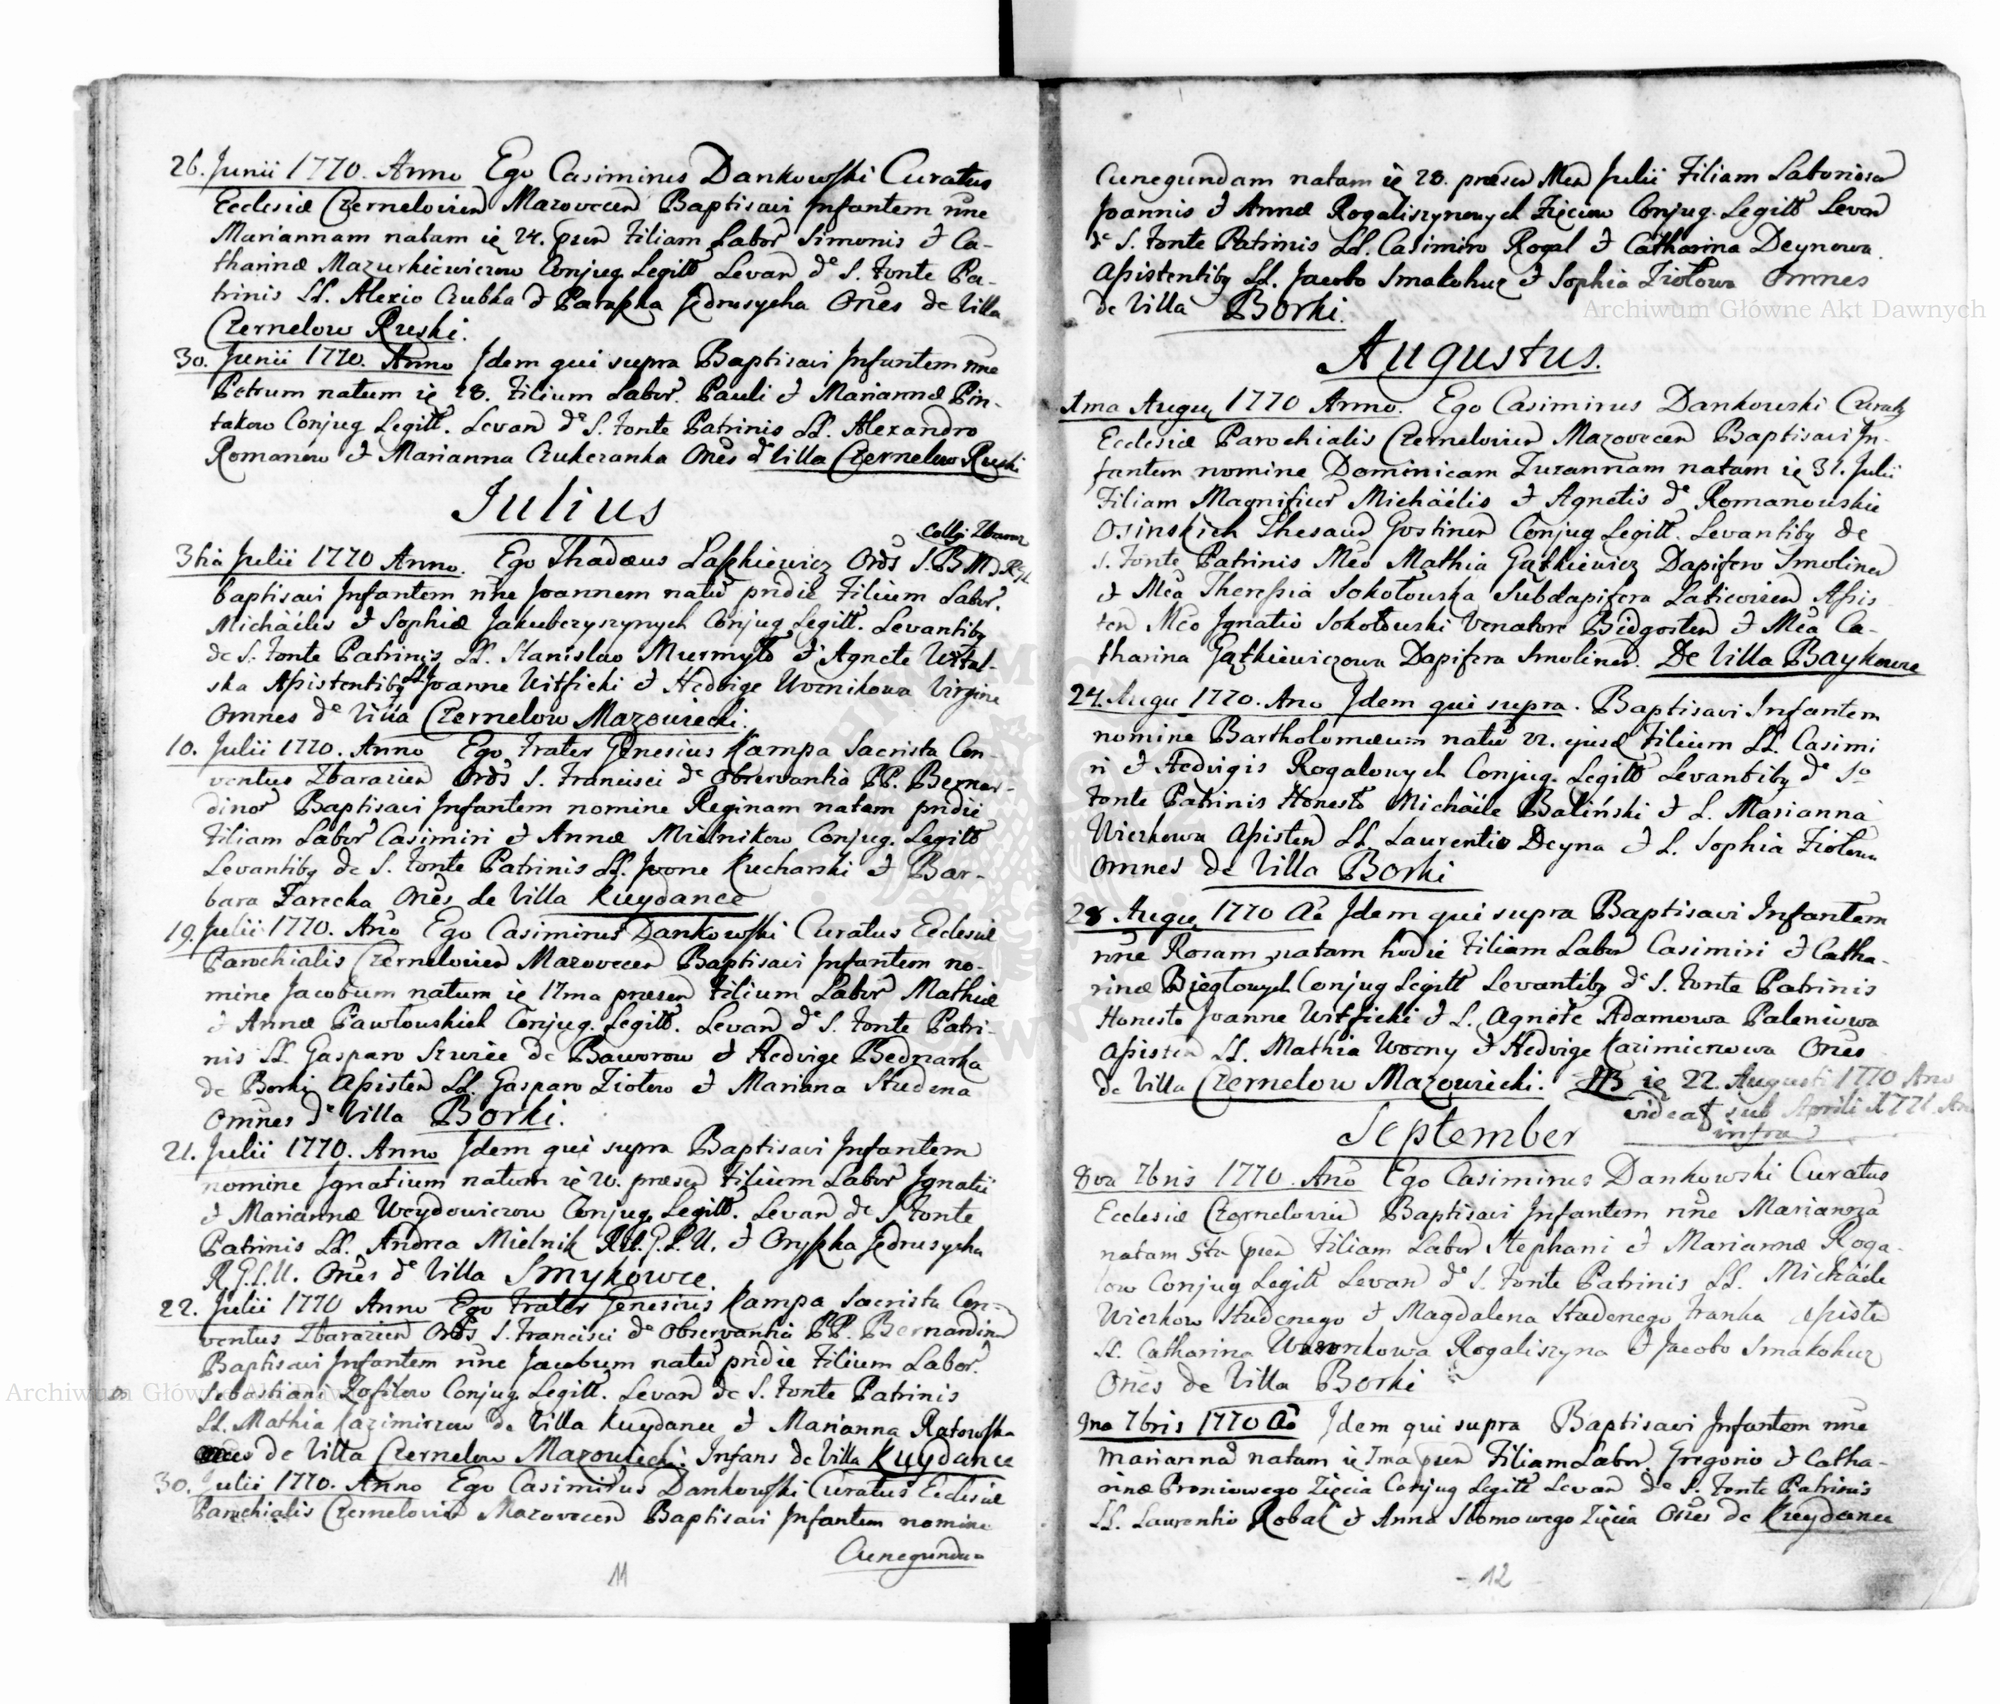 26. Junii 1770. Anno Ego Casimirus Dankowski Curatus
Ecclesiæ Czernelovien Mazovecen Baptisavi Infantem nne
Mariannam natam ie 24. pren Filiam Labor Simonis et Ca-
tharinæ Mazurkiewiczow Conjug Legitt Levan de S. Fonte Pa-
trinis LL. Alexio Czubka et Paraska Jedrusycha Ones de Villa
Czernelow Ruski.
30. Junii 1770. Anno Idem qui supra Baptisavi Infantem nne
Petrum natum ie 28. Filium Labor. Pauli et Mariannæ Pin-
takow Conjug Legitt. Levan de S. Fonte Patrinis LL. Alexandro
Romanow et Marianna Czukeranka Ones de Villa Czernelow Ruski
Julius
Collgi Zbaraz
3tia Julii 1770 Anno. Ego Thadæus Laskiewicz Ords S. B M
baptisavi Infantem nne Joannem natu pridie Filium Labor.
Michaelis et Sophiæ Jakubczyszynych Conjug Legitt. Levantibg
de S. Fonte Patrinis LL. Stanislao Murmyło et Agnete
ska Assistentibg LL Joanne Witficki et Hedvige Woznikowa Virgine
Omnes de Villa Czernelow Mazowiecki.
10. Julii 1770. Anno Ego Frater Genesius Kampa Sacrista Con-
ventus Zbarazien Ords S. Francisci de Observantia PP. Bernar-
dinor Baptisavi Infantem nomine Reginam natam pridie
Filiam Labor Casimiri et Annæ Mielnikow Conjug. Legitt
Levantibg de S. Fonte Patrinis LL. Ivone Kucharski et Bar-
bara Farecka Ones de Villa Kuydance
19. Julii 1770. Ano Ego Casimirus Dankowski Curatus Ecclesiæ
Parochialis Czernelovien Mazovecen Baptisavi Infantem no-
mine Jacobum natum ie 17ma præsen Filium Labor Mathiæ
et Annæ Pawłowskich Conjug. Legitt. Levan de S. Fonte Patri-
nis LL. Gasparo Szwiec de Baworow et Hedvige Bednarka
de Borki Assisten LL. Gasparo Ziołero et Mariana Studena
Omnes de Villa Borki.
21. Julii 1770. Anno Idem qui supra Baptisavi Infantem
nomine Ignatium natum ie 20. præsen Filium Labor Ignatii
et Mariannæ Weydowiczow Conjug Legitt. Levan de S. Fonte
Patrinis LL. Andrea Mielnik Rit. G. L. U. et Oryszka Jedrusycha
R. G. L. U. Ones de Villa Smykowce.
22. Julii 1770 Anno Ego Frater Genesius Kampa Sacrista Con-
ventus Zbarazien Ords S. Francisci de Observantia PP. Bernardinor
Baptisavi Infantem nne Jacobum natu pridie Filium Labor.
Sebastiani Zofilow Conjug Legitt. Levan de S. Fonte Patrinis
LL. Mathia Kazimirzow de Villa Kuydance et Marianna Ratowska
de Villa Czernelow Mazowiecki. Infans de Villa Kuydance
30. Julii 1770. Anno Ego Casimirus Dankowski Curatus Ecclesiæ
Parochialis Czernelovien Mazovecen Baptisavi Infantem nomine
Cunegundam
11
Cunegundam natam ie 28. præsen Men Julii Filiam Laborioser
Joannis et Annæ Rogaliszynowych Zięciow Conjug. Legitt Levan
de S. Fonte Patrinis LL. Casimiro Rogal et Catharina Deynowa
Assistentibg LL. Jacobo Smakohuz et Sophia Ziołowa Omnes
de Villa Borki.
Augustus.
1ma Augu 1770 Anno. Ego Casimirus Dankowski Curatg
Ecclesiæ Parochialis Czernelovien Mazovecen Baptisavi In-
fantem nomine Dominicam Zuzannam natam ie 31. Julii
Filiam Magnificor Michaëlis et Agnetis de Romanowskie
Osinskich Thesaur Gostinen Conjug Legitt. Levantibg de
S. Fonte Patrinis Mco Mathia Gątkiewicz Dapifero Smolinen
et Mca Theressia Sokołowska Subdapifera Laticovien Assis
ten Mco Ignatio Sokołowski Venatore Bidgosten et Mca Ca-
tharina Gątkiewiczowa Dapifera Smolinen. De Villa Baykowce
24. Augu 1770. Ano Idem qui supra. Baptisavi Infantem
nomine Bartholomæum natu 22. ejusd Filium LL. Casimi
ri et Hedvigis Rogalowych Conjug. Legitt Levantibg de So
Fonte Patrinis Honesto Michaële Baliński et L. Marianna
Wierkowa Assisten LL. Laurentio Deyna et L. Sophia Ziołowa
Omnes de Villa Borki
28 Augu 1770 Ao Idem qui supra Baptisavi Infantem
nne Rosam natam hodie Filiam Labor Casimiri et Catha-
rinæ Biegłowych Conjug Legitt Levantibg de S. Fonte Patrinis
Honesto Joanne Witficki et L. Agnete Adamowa Paleniowa
Assisten LL. Mathia Wozny et Hedvige Kazimierzowa Ones
de Villa Czernelow Mazowiecki. NB ie 22. Augusti 1770 Ano
videat sub Aprili 1771 Ano
infra
September
8va 7bris 1770. Ano Ego Casimirus Dankowski Curatus
Ecclesiæ Czernelovien Baptisavi Infantem nne Mariannã
natam 5ta pren Filiam Labor Stephani et Mariannæ Roga-
low Conjug Legitt Levan de S. Fonte Patrinis LL. Michaële
Wierkow Studenego et Magdalena Studenego Franka Assisten
LL. Catharina Rogaliszyna et Jacobo Smakohuz
Ones de Villa Borki
7bris 1770 Ao Idem qui supra Baptisavi Infantem nne
Mariannã natam ie 7ma pren Filiam Labor Gregorio et Catha-
rinæ Broniowego Zięcia Conjug Legitt Levan de S. Fonte Patrinis
LL. Laurentio Robak et Anna Słomowego Zięcia Ones de Kuydance
12
Archiwum Główne Akt Dawnych